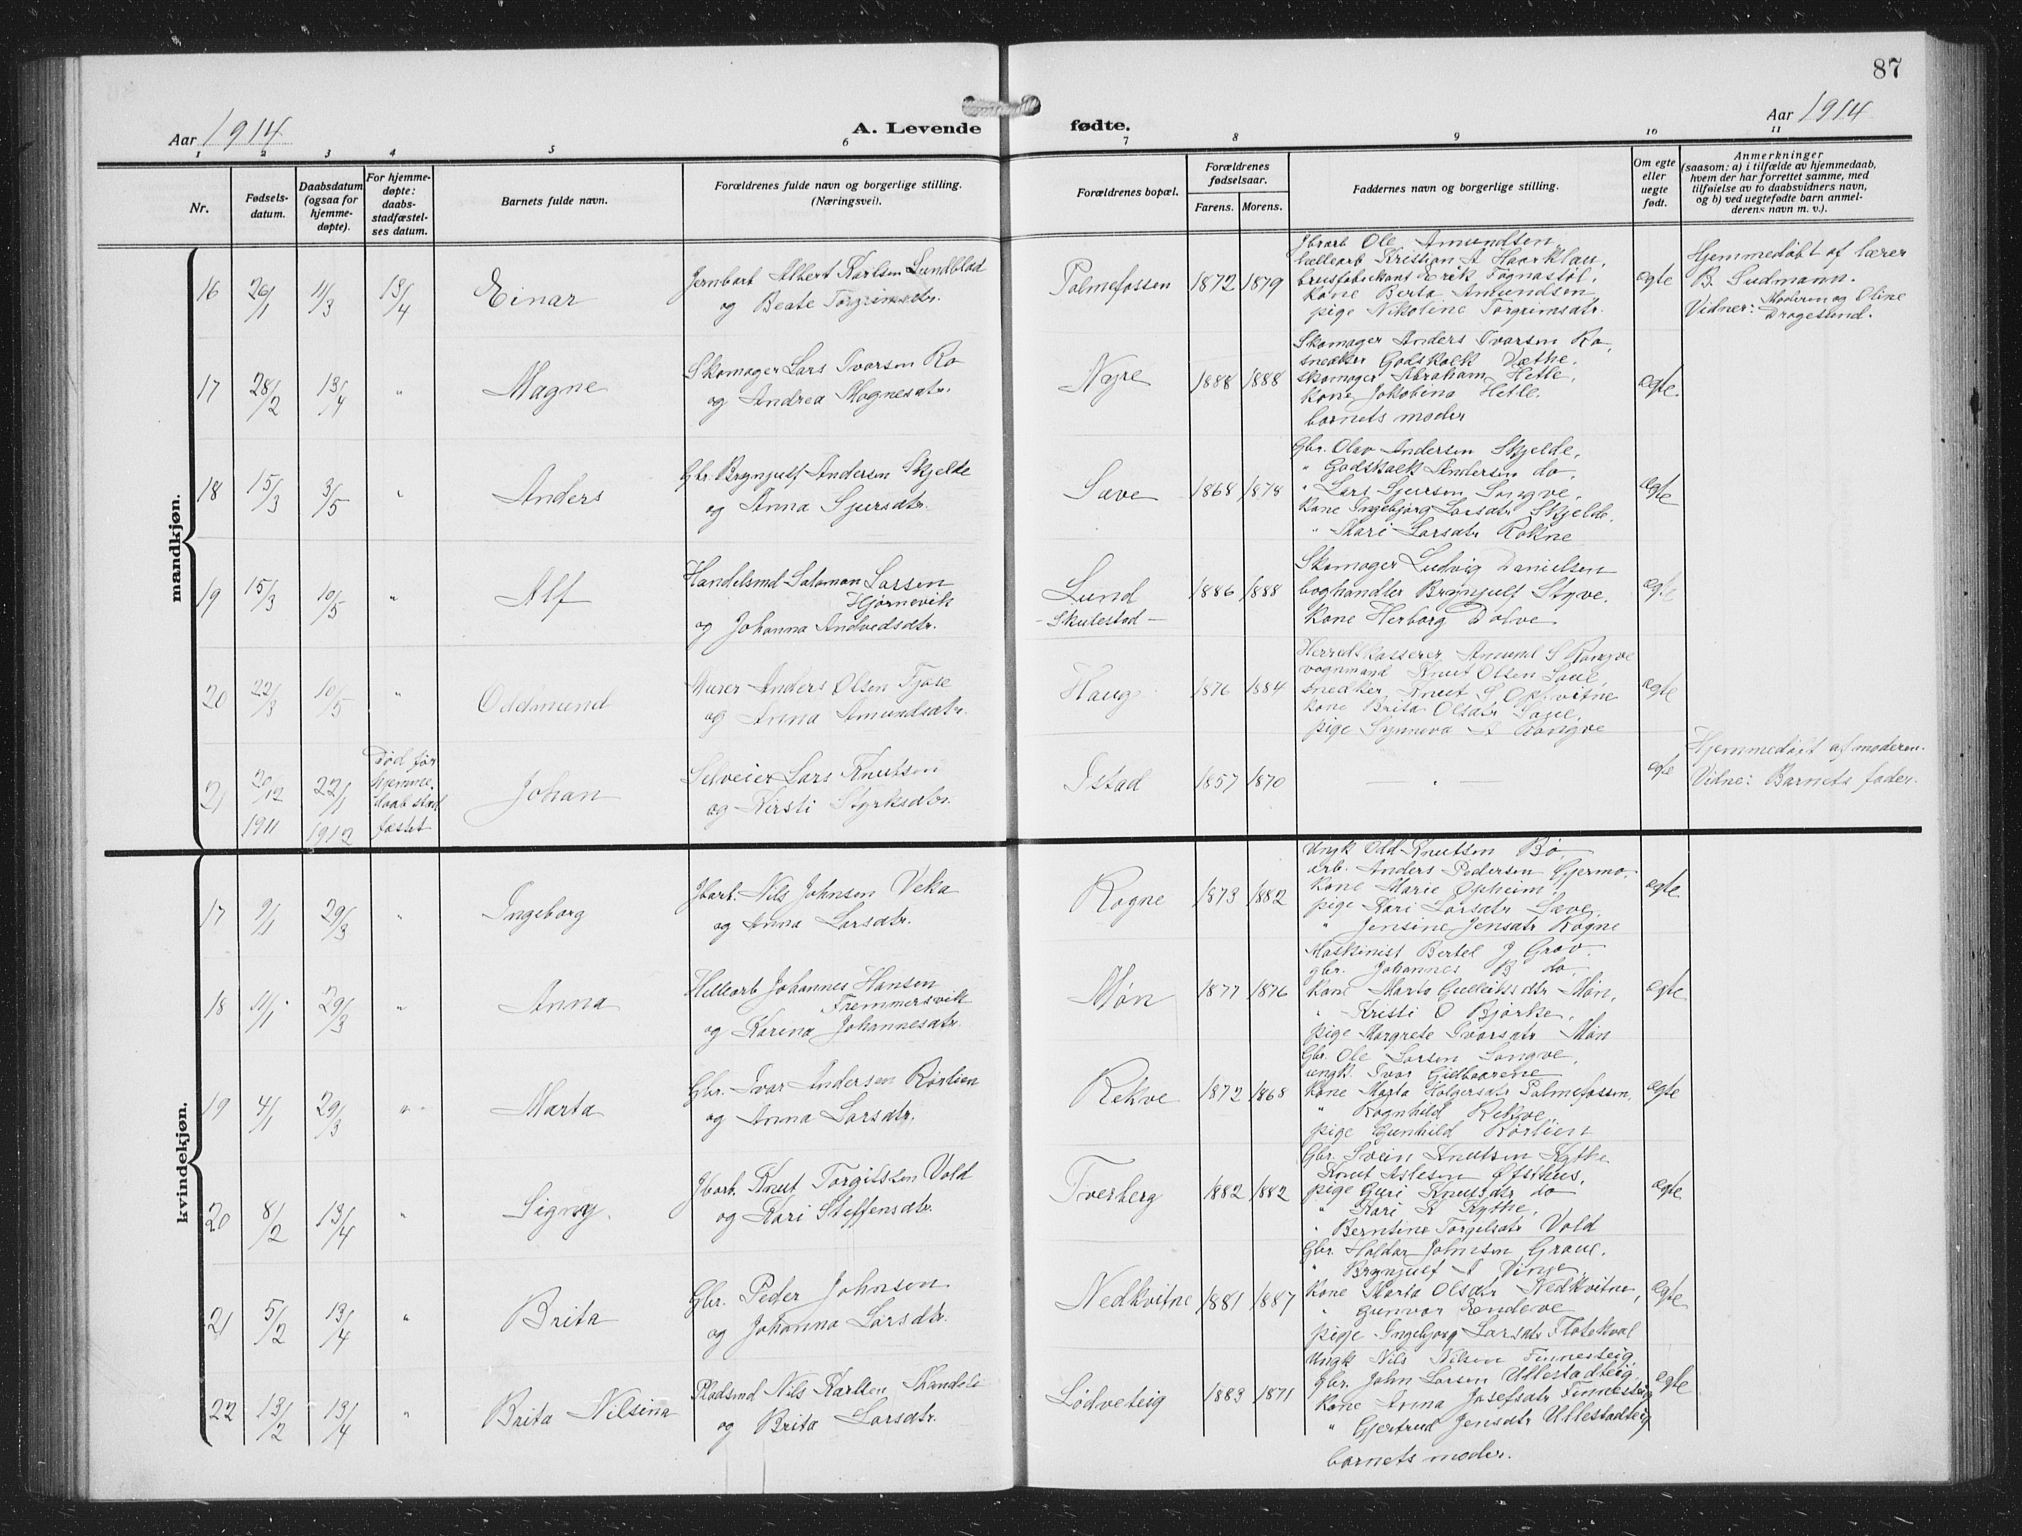 87
Aar 1914
A. Levende
fødte.
Aar 1914
1 2 3 4 5 6 7 8 9 10 11
Nr.
Fødsels-
datum.
Daabsdatum
(ogsaa for
hjemme-
døpte).
For hjemme-
døpte:
daabs-
stadfæstel-
ses datum.
Barnets fulde navn.
Forældrenes fulde navn og borgerlige stilling.
(Næringsvei).
Forældrenes bopæl.
Forældrenes
fødselsaar.
Farens. Morens.
Faddernes navn og borgerlige stilling.
Om egte
eller
uegte
født.
Anmerkninger
(saasom: a) i tilfælde av hjemmedaab,
hvem der har forrettet samme, med
tilføielse av to daabsvidners navn,
og b) ved uegtefødte barn anmel-
derens navn m. v.).
mandkjøn.
16 26/1 11/3 13/4 Einar
Jernbarb Albert Karlsen Lundblad
og Beate Torgrimsdtr.
Palmefossen 1872 1879
Jbarb Ole Amundsen,
hellearb Kristian A Haarklau,
brusfabrikant Erik Tøgnastøl,
kone Berta Amundsen
pige Nikoline Torgrimsdtr.
egte
Hjemmedøbt af lærer
B. Sudmann.
Vidner: Moderen og Oline
Dragesund.
17 28/2 13/4 " Magne
Skomager Lars Ivarsen Ro
og Andrea Mognesdtr.
Nyre 1888 1888
Skomager Anders Ivarsen Ro,
snedker Godskalk Væthe,
skomager Abraham Hetle,
kone Jakobina Hetle
barnets moder
egte.
18 15/3 3/5 " Anders
Gbr. Brynjulf Andersen Skjelde
og Anna Sjursdtr.
Save 1868 1878
Gbr. Olav Andersen Skjelde,
" Godskalk Andersen do,
" Lars Sjursen Songve,
Kone Ingebjørg Larsdtr Skjelde,
" Mari Larsdtr Rokne
egte
19 15/3 10/5 " Alf
Handelsmd Salamon Larsen
Hjørnevik
og Johanna Andvedsdtr.
Lund
- Skulestad -
1886 1888
Skomager Ludvig Danielsen
boghandler Brynjulf Styve.
Kone Herborg Dolve
egte
20 22/3 10/5 " Oddmund
Murer Anders Olsen Tjore
og Anna Amundsdtr.
Haug 1876 1884
Herredskasserer Amund S Rongve
vognmand Knut Olsen Saue,
snedker Knut S Opkvitne
kone Brita Olsdtr Saue,
pige Synneva A Rongve
egte
21 20/12 1911 22/1 1912
Død før
hjemme-
daab stad
fæstet
Johan
Selveier Lars Knutsen
og Kirsti Styrksdtr.
Istad 1857 1870
— " —
egte
Hjemmedøbt af moderen.
Vidne: Barnets fader.
kvindekjøn.
17 9/1 29/3 " Ingeborg
Jbarb. Nils Johnsen Veka
og Anna Larsdtr.
Rogne 1873 1882
Ungk Odd Knutsen Bø,
arb. Anders Pedersen Gjermo,
kone Marie Opheim,
pige Kari Larsdtr Save,
" Jensine Jensdtr Rogne
egte
18 11/1 29/3 " Anna
Hellearb Johannes Hansen
Fremmersvik
og Karina Johannesdtr.
Møn 1877 1876
Maskinist Bertel J Grov
gbr. Johannes B do,
kone Marta Gulleiksdtr Møn,
" Kristi O Bjørke,
pige Margrete Ivarsdtr Møn
egte
19 4/1 29/3 " Marta
Gbr. Ivar Andersen Rørlien
og Anna Larsdtr.
Rekve 1872 1868
Gbr. Ole Larsen Songve,
ungk. Ivar Gjelbaarene
kone Marta Holgersdtr Palmefossen,
" Ragnhild Rekve,
pige Gunhild Rørlien
egte
20 8/2 13/4 " Signy.
Jbarb. Knut Torgilssen Vold
og Kari Steffensdtr.
Tverberg 1882 1882
Gbr. Svein Knutsen Kythe
Knut Aslesen Øfsthus,
pige Guri Knutsdtr do
" Kari K Kythe,
" Berntine Torgilsdtr Vold
egte
21 5/2 13/4 " Brita
Gbr. Peder Johnsen
og Johanna Larsdtr.
Nedkvitne 1881 1887
Gbr. Haldor Johnsen Grove.
" Brynjulf A Vinje
Kone Marta Olsdtr Nedkvitne,
" Gunvor Endeve
pige Ingebjørg Larsdtr Flotekval
egte
22 13/2 13/4 " Brita Nilsina
Pladsmd Nils Karlsen
og Brita Larsdtr.
Lødveteig 1883 1871
Ungk Nils Nilsen Finnesteig
Gbr. John Larsen Ullestadteig,
Kone Anna Josefsdtr Finnesteig
" Gjertrud Jensdtr Ullestadteig
barnets moder.
egte